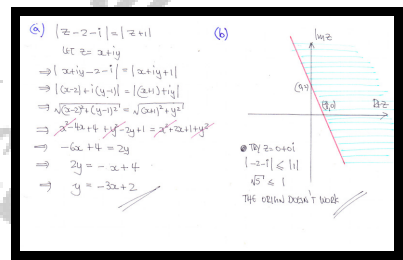 (a) |z-2-i| = |z+1|
Let z = x+iy
⇒ |x+iy-2-i| = |x+iy+1|
⇒ |(x-2)+i(y-1)| = |(x+1)+iy|
⇒ √((x-2)²+(y-1)²) = √((x+1)²+y²)
⇒ x²-4x+4+y²-2y+1 = x²+2x+1+y²
⇒ -6x+4 = 2y
⇒ 2y = -x+4
⇒ y = -3x+2
(b)
Im z
Re z
TRY z=0+0i
|-2-i| ≤ |1|
√5 ≤ 1
THE ORIGIN DOESN'T WORK